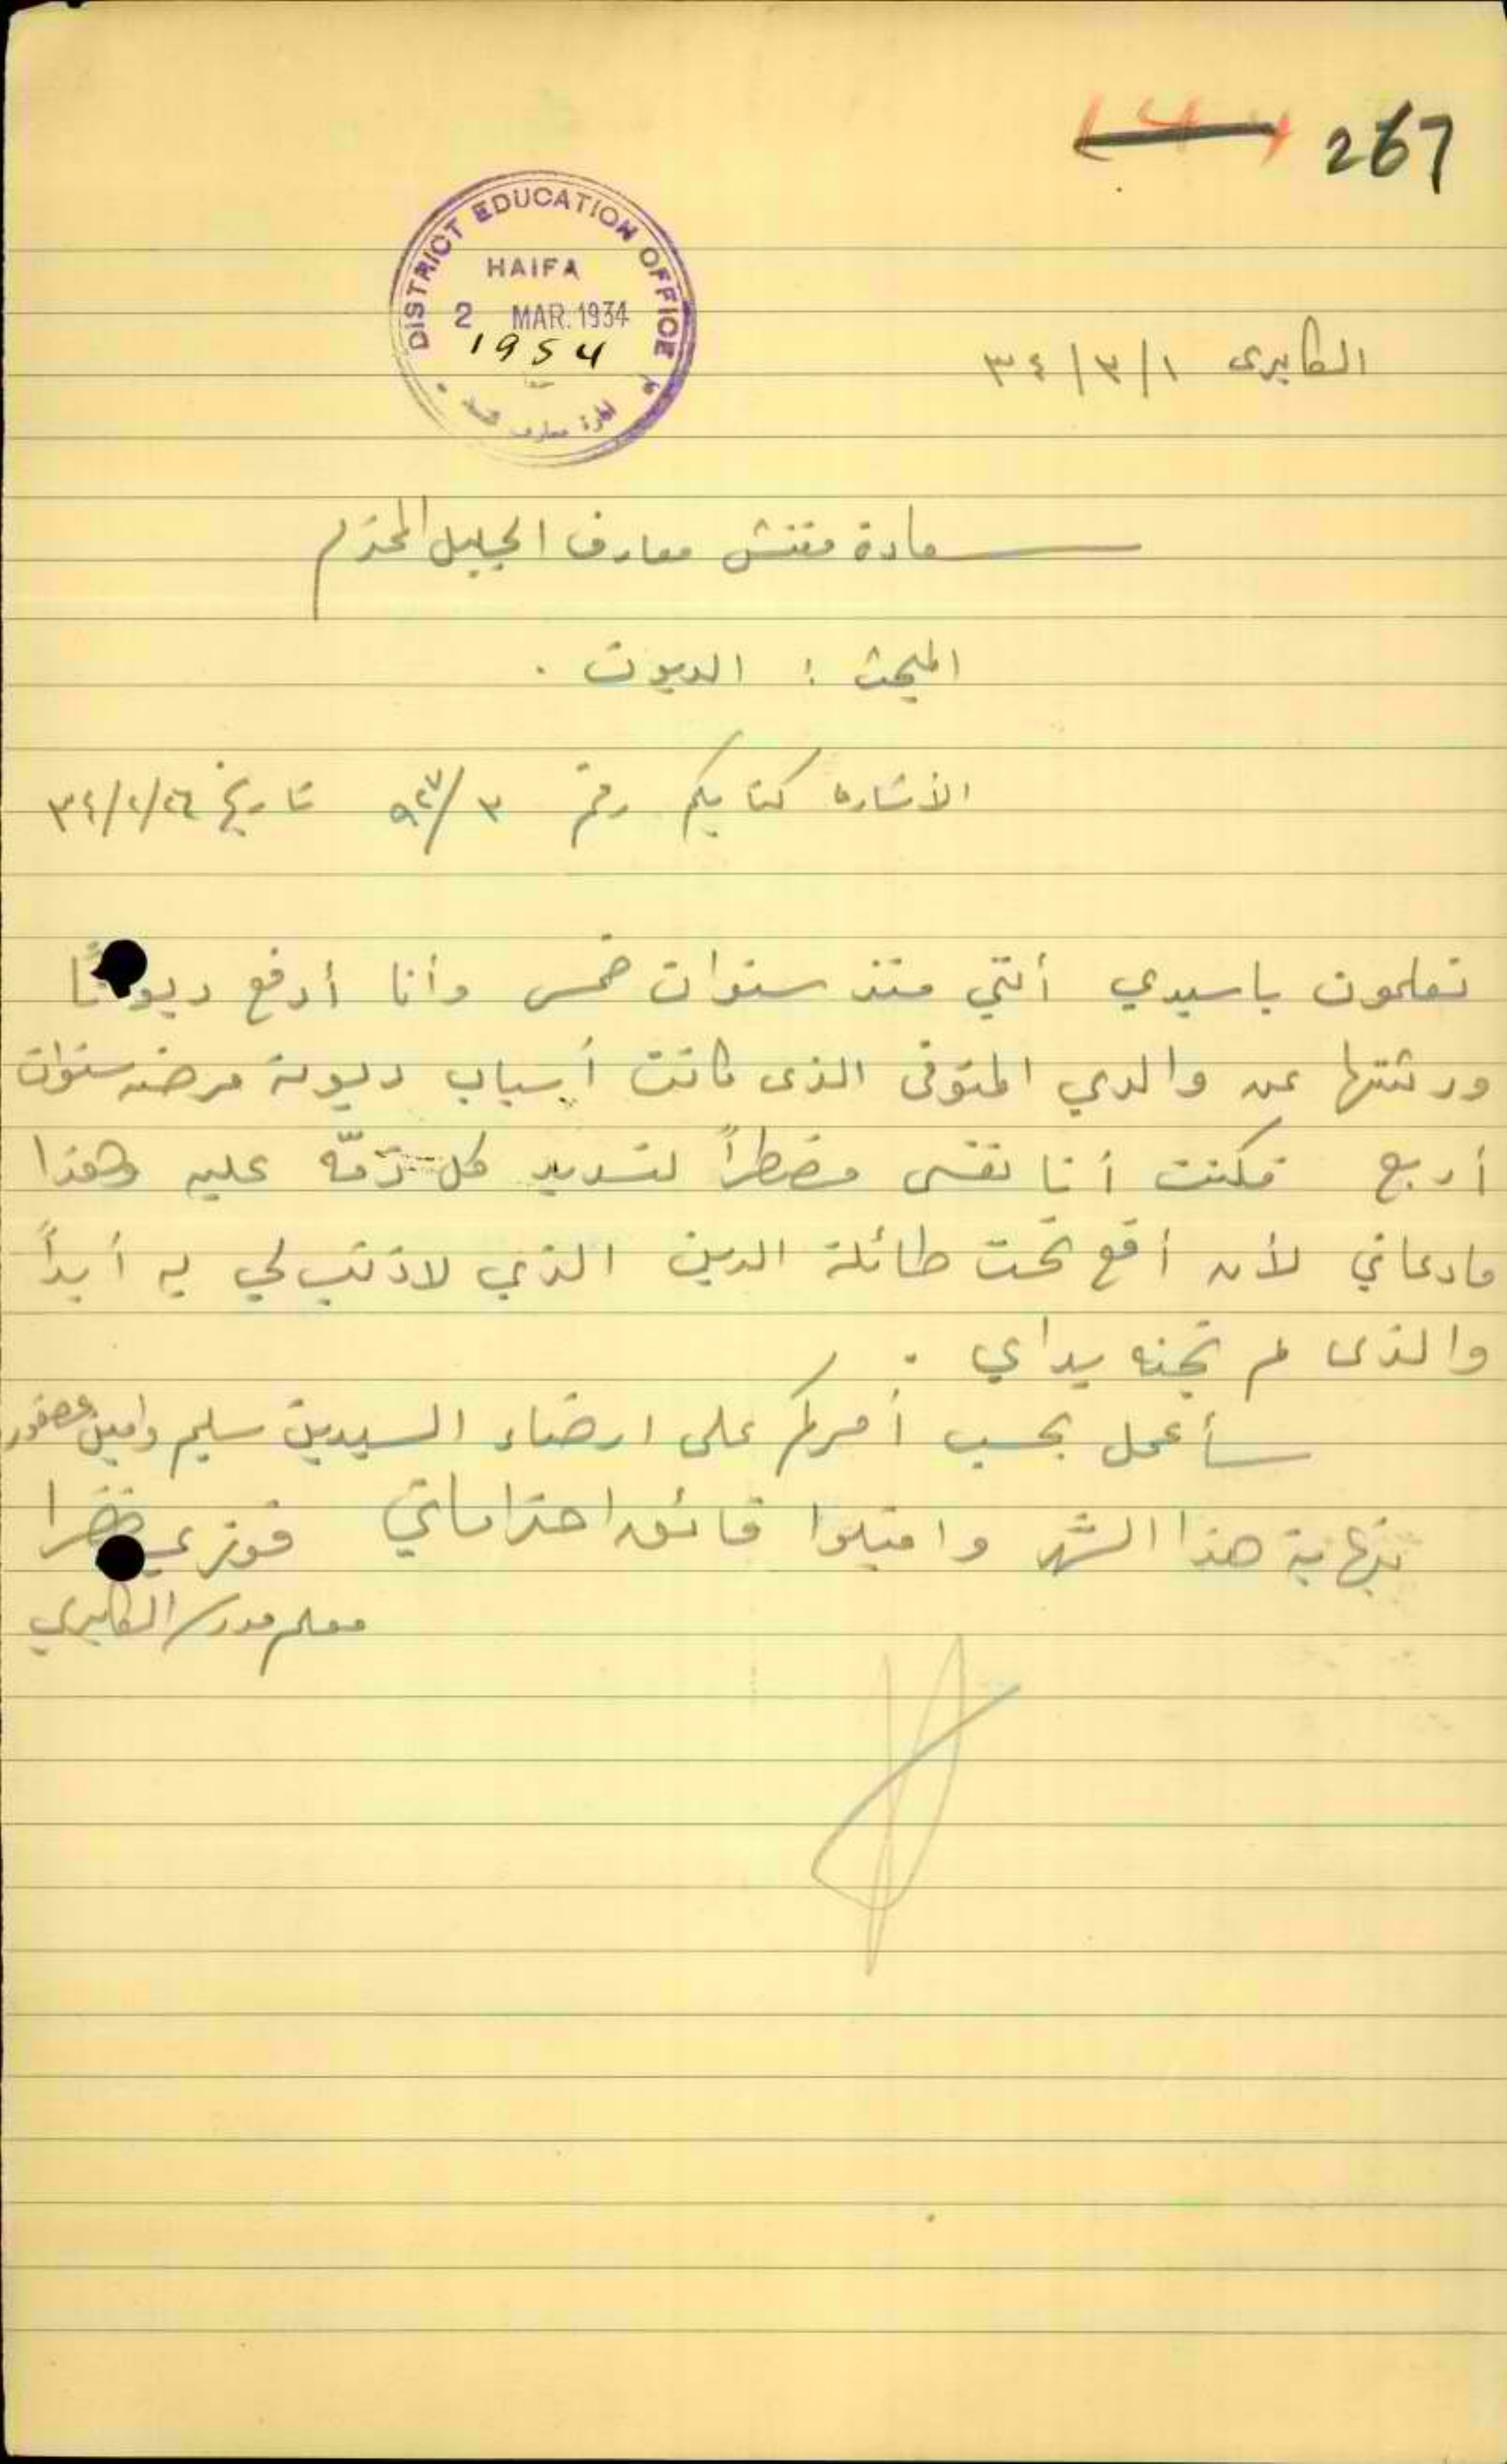 267
DISTRICT EDUCATION OFFICE
HAIFA
2 MAR. 1934
1954
الكابري ٣٤/٣/١
سعادة مفتش معارف الجليل المحترم
المبحث : الديون .
الأشارة كتابكم رقم ٣/٩٢٧ تاريخ ٣٤/٢/٢٦
تعلمون ياسيدي أنني منذ سنوات خمس وأنا أدفع ديونًا
ورثتها عن والدي المتوفى الذى كانت أسباب ديونه مرضه سنوات
أربع فكنت أنا نفسى مضطراً لتسديد كل ذمّة عليه وهذا
مادعاني لأن أقع تحت طائلة الدين الذي لاذنب لي به أبداً
والذى لم تجنه يداي .
سأعمل بحسب أمركم على ارضاء السيدين سليم وامين عصفور
بنهاية هذا الشهر واقبلوا فائق احتراماتي فوزي
معلم مدرسة الكابري